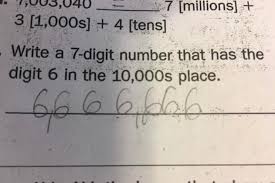 7,003,040 = 7 [millions] +
3 [1,000s] + 4 [tens]
. Write a 7-digit number that has the
digit 6 in the 10,000s place.
6,666,666